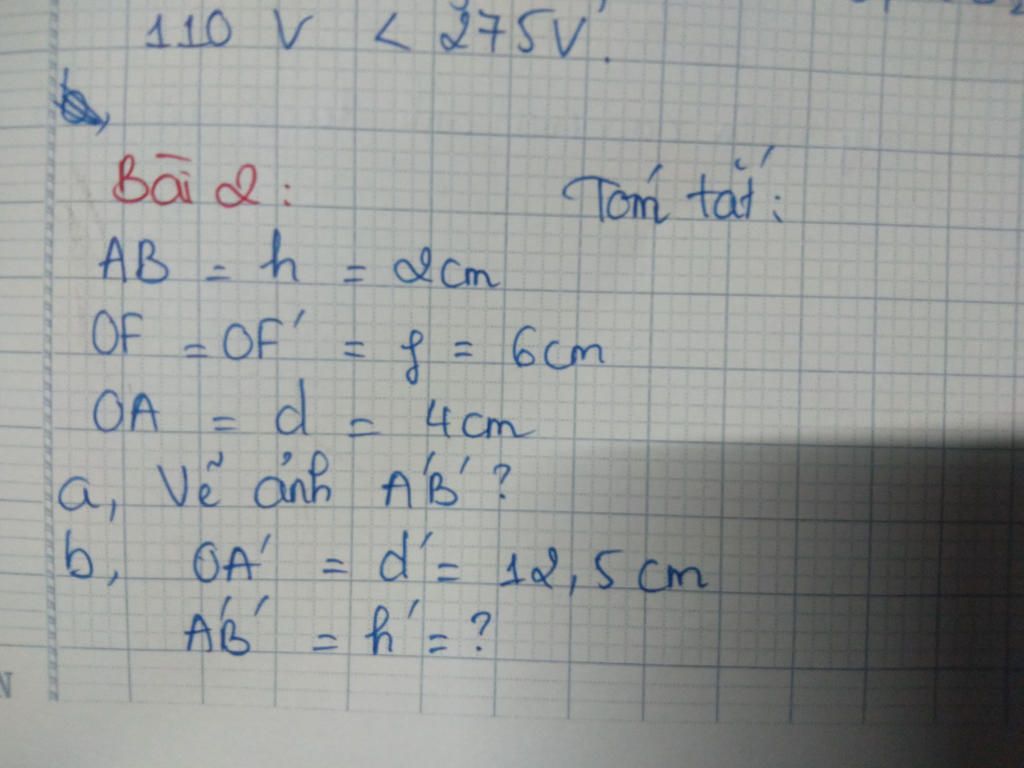 110 V < 275V.
b,
Bài 2: Tóm tắt:
AB = h = 2cm
OF = OF' = f = 6cm
OA = d = 4cm
a, Vẽ ảnh A'B' ?
b, OA' = d' = 12,5 cm
A'B' = h' = ?
N